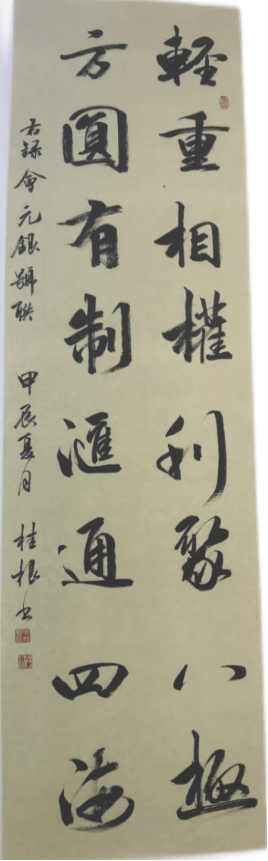 輕重相權利聚八極
方圓有制滙通四海
右錄會元銀號聯 甲辰夏月 桂根书